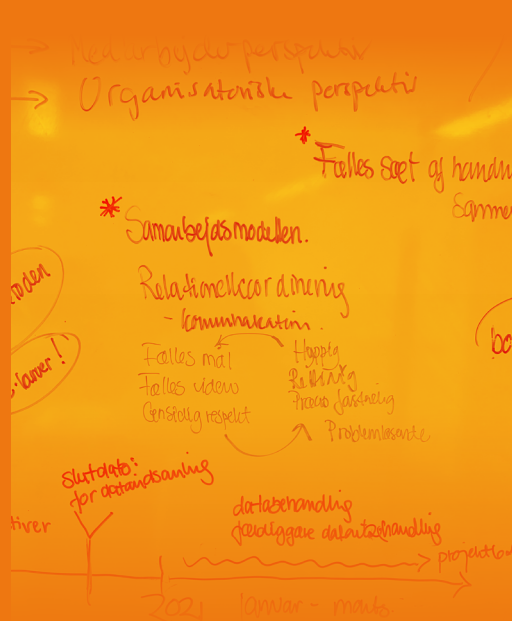 Medarbejder perspektiv
Organisatoriske perspektiv
* Fælles sæt af handl
Samme
* Samarbejdsmodellen.
Relationel koordinering
- kommunikation.
Fælles mål
Fælles viden
Gensidig respekt
Hyppig
Rettidig
Præcis
Problemløsende
slutdato:
for dataindsamling
tiver
databehandling
færdiggøre databehandling
2021 Januar - marts.